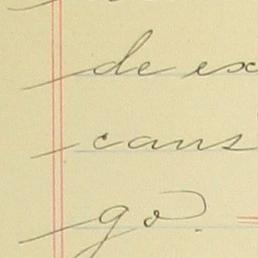 de ex
cans
go.